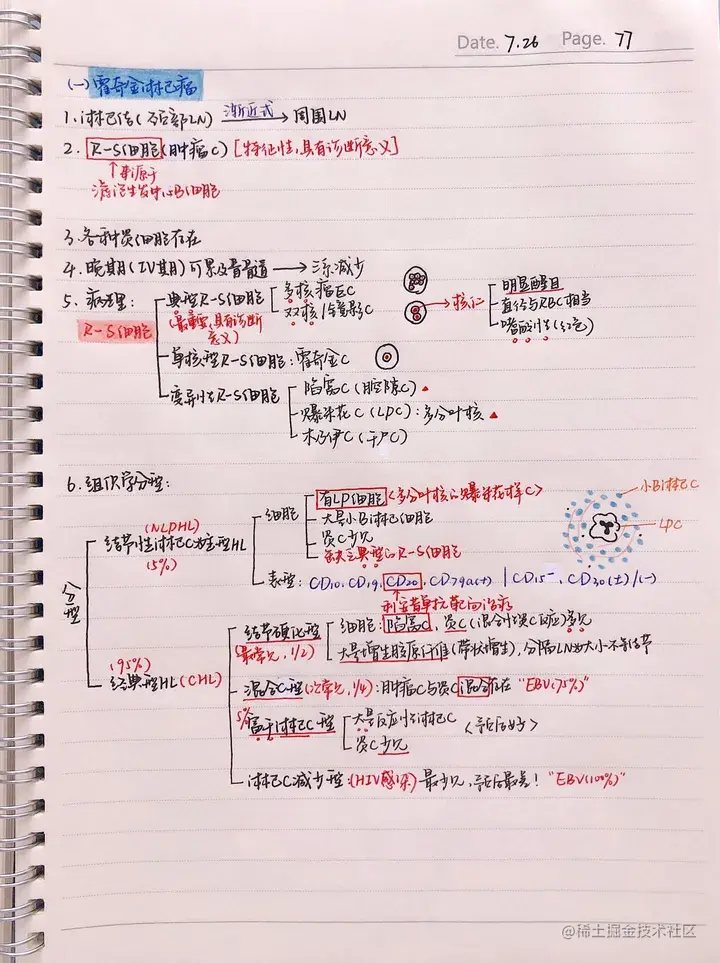 Date. 7.26 Page. 77
(一) 霍奇金淋巴瘤
1. 淋巴结(颈部LN) 渐近式→ 周围LN
2. R-S细胞(肿瘤C) [特征性,具有诊断意义]
↑来源于
滤泡生发中心B细胞
3. 各种炎细胞存在
4. 晚期(IV期)可累及骨髓 → 三系减少
5. 病理:
R-S细胞
典型R-S细胞
(最重要,具有诊断意义)
多核瘤巨C
双核/镜影C
→核仁
明显醒目
直径与RBC相当
嗜酸性(红色)
单核型R-S细胞:霍奇金C
变异性R-S细胞
陷窝C(腔隙C)▲
爆米花C(LPC):多分叶核▲
木乃伊C(干尸C)
6. 组织学分型:
分型
(NLPHL)
结节性淋巴C为主型HL
(5%)
细胞
有LP细胞<多分叶核の爆米花样C>
大量小B淋巴细胞
炎C少见
缺乏典型のR-S细胞
小B淋巴C
LPC
表型:CD10, CD19, CD20, CD79a(+) | CD15⁻, CD30(±)/(-)
利妥昔单抗靶向治疗
(95%)
经典型HL(CHL)
结节硬化型
(最常见,1/2)
细胞:陷窝C,炎C(混合性炎C反应)常见
大量增生胶原纤维(带状增生),分隔LN为大小不等结节
混合C型(次常见,1/4):肿瘤C与炎C混合存在 "EBV(75%)"
5% 富于淋巴C型
大量反应性淋巴C
炎C少见
<预后好>
淋巴C减少型:(HIV感染)最少见,预后最差! "EBV(100%)"
@稀土掘金技术社区